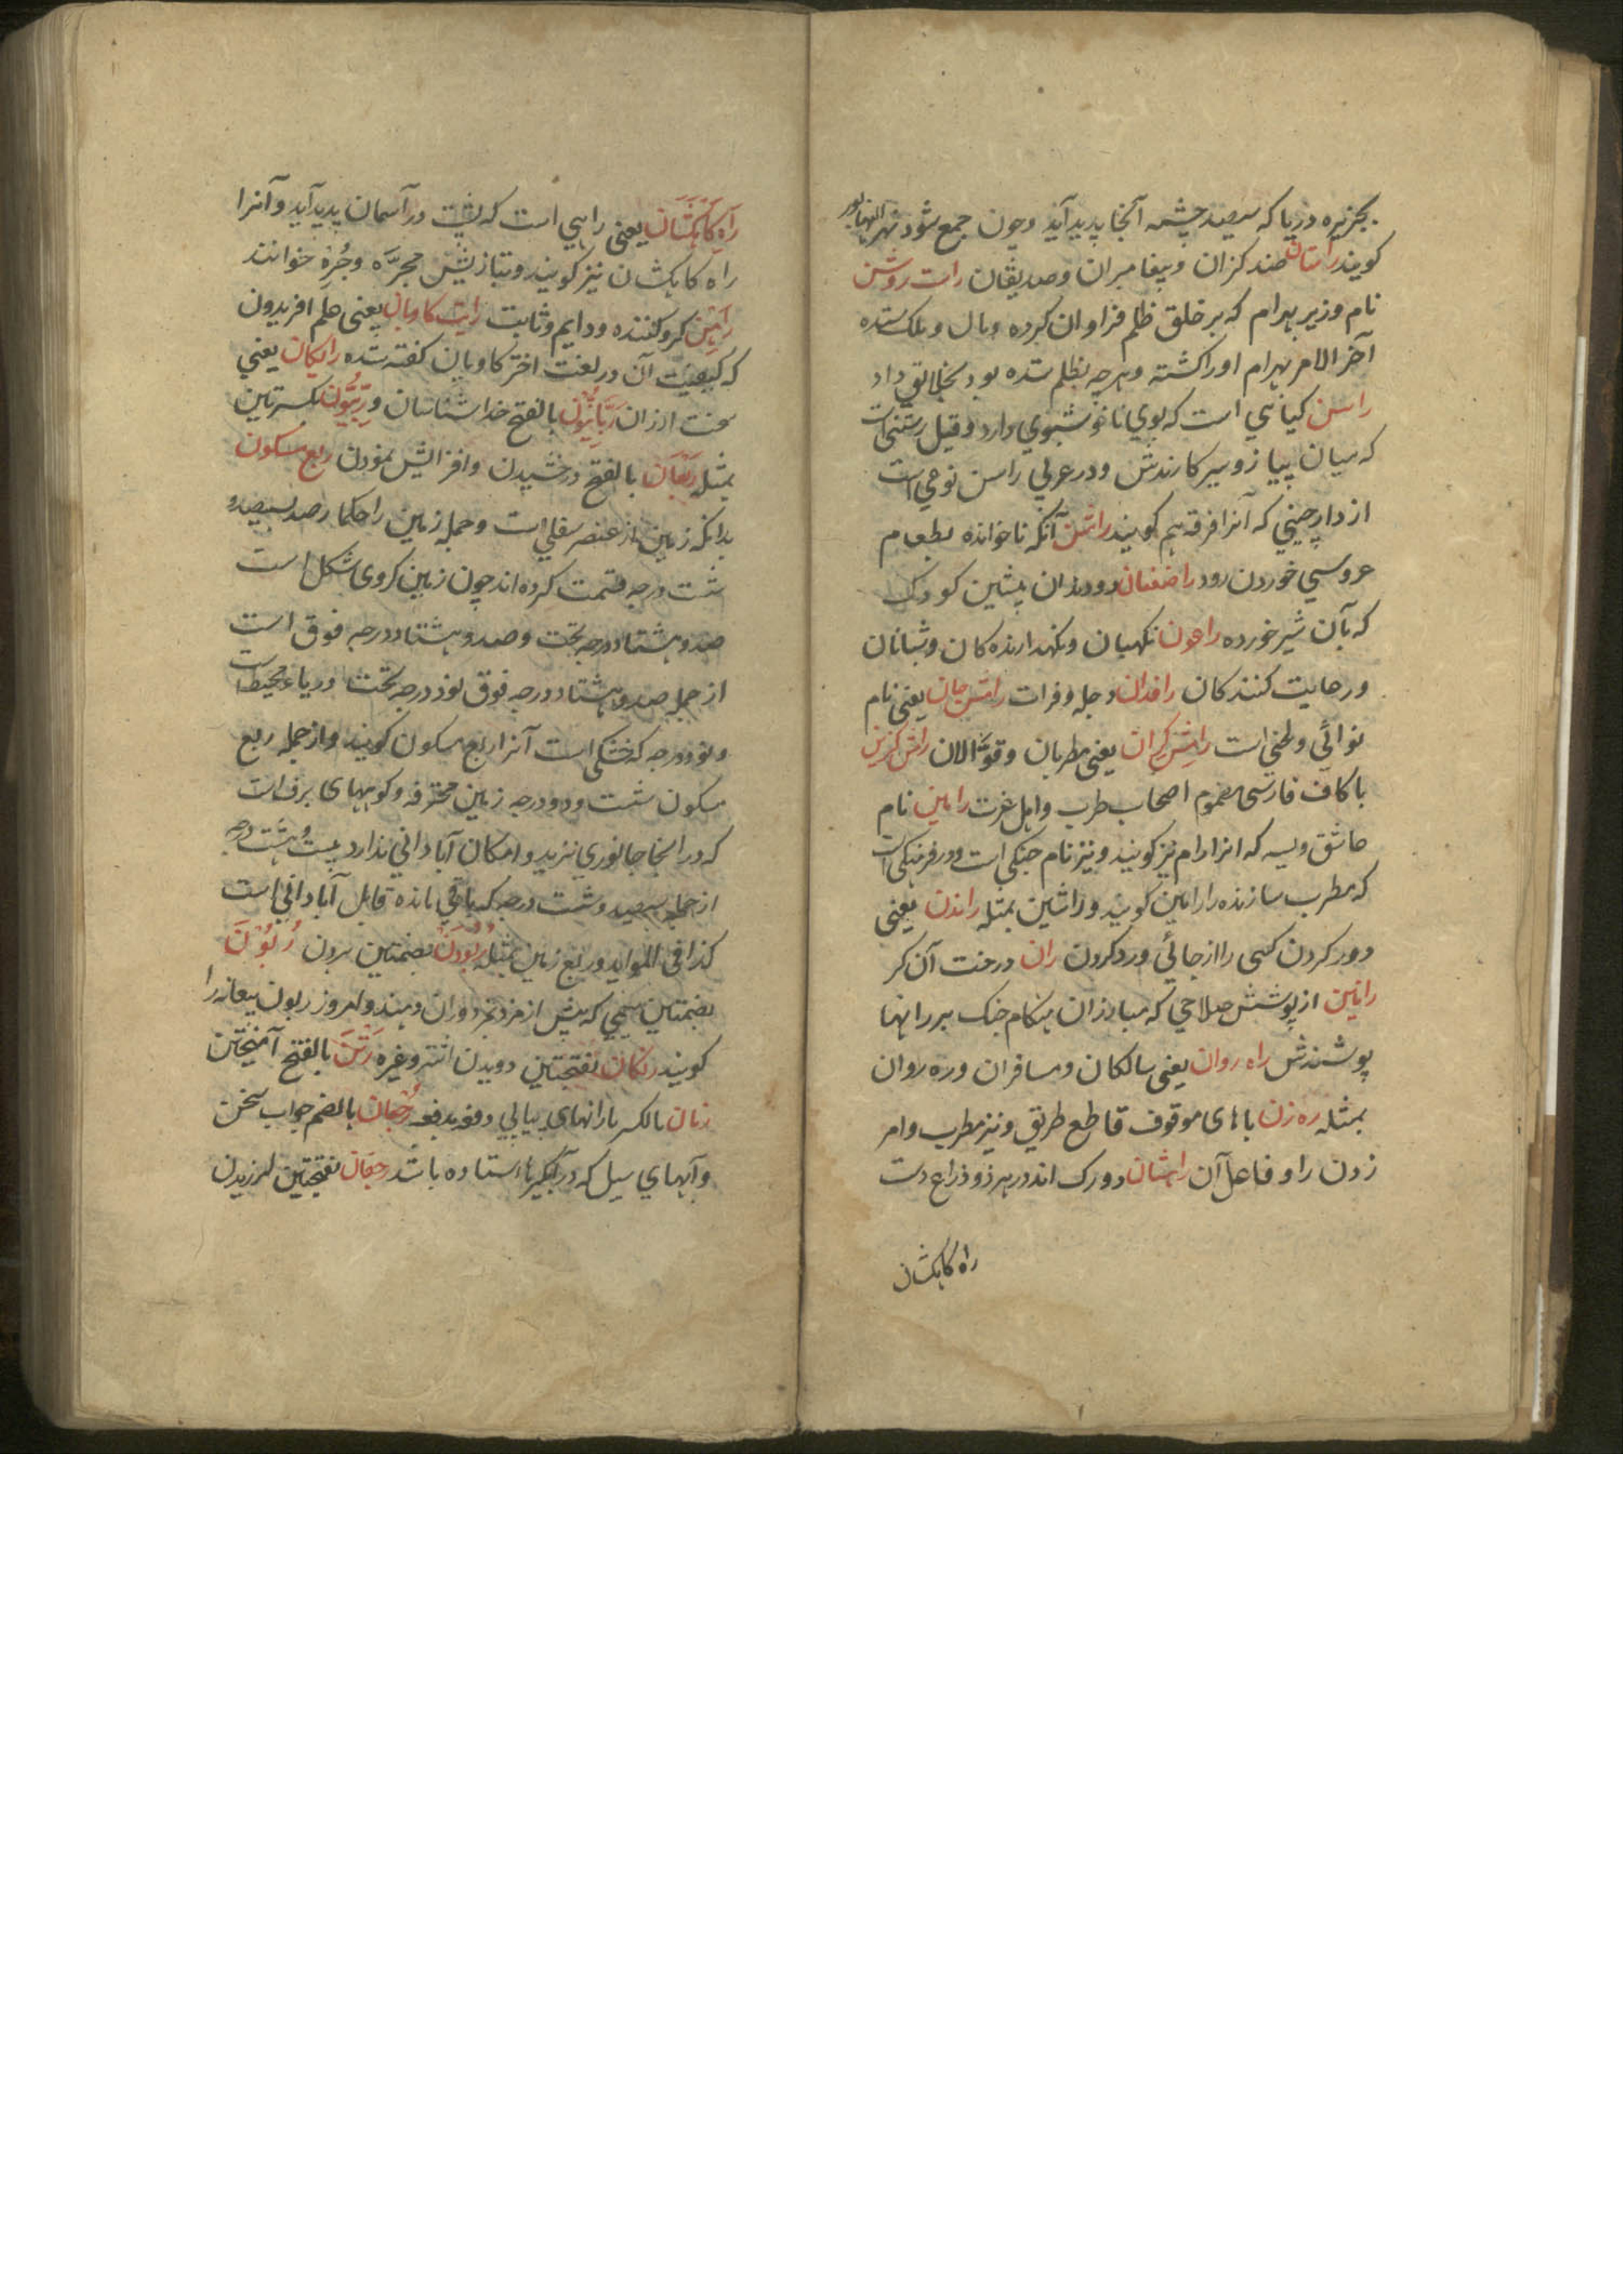 بجزیره دریا که سیصد چشمه آنجا پدید آید و چون جمع شود نهر
کویند راستان ضد کژان و پیغامبران و صدیقان راست روشن
نام وزیر بهرام که بر خلق ظلم فراوان کرده و مال و ملک ستده
آخر الامر بهرام او را کشته و هر چه بظلم ستده بود بخلایق داد
راسن کیاهی است که بوی ناخوشبوی دارد و قیل رستنی است
که میان پیاز و سیر کارندش و در عربی راسن نوعی است
از دارچینی که آنرا قرفه هم کویند راشن آنکه ناخوانده بطعام
عروسی خوردن رود راضعان دو دندان پیشین کودک
که بآن شیر خورده راعون نکهبان و نکهدارنده کان و شبانان
و رعایت کنندکان رافدان دجله و فرات رامش جان یعنی نام
نوائی و لحنی است رامش کران یعنی مطربان و قوالان رامش کزین
با کاف فارسی مضموم اصحاب طرب و اهل عزت رامین نام
عاشق ویسه که انرا رام نیز کویند و نیز نام چنکی است و در فرهنکی است
که مطرب سازنده را رامین کویند و راشین بمثله راندن یعنی
دور کردن کسی را از جائی و رد کردن ران درخت آن کر
رانین از پوشش صلاحی که مبارزان هنکام جنک بر رانها
پوشندش راه روان یعنی سالکان و مسافران و ره روان
بمثله ره زن با های موقوف قاطع طریق و نیز مطرب و امر
زدن را و فاعل آن راهشان دو رک اند در هر دو ذراع دست
راه کاهکشان
راه کاهکشان یعنی راهی است که بشب در آسمان پدید آید و آنرا
راه کاهکشان نیز کویند و بتازیش مجره و جره خوانند
راهن کرو کننده و دایم و ثابت رایت کاویان یعنی علم افریدون
که کیفیت آن در لغت اختر کاویان کفته شده رایکان یعنی
سخت ارزان ربانیون بالفتح خداشناسان و ربیون بکسرتین
بمثله ربعان بالفتح درخشیدن و افزایش نمودن ربع مسکون
بدانکه زمین از عنصر سفلی است و جمله زمین را حکما رصد سیصد و
شصت درجه قسمت کرده اند چون زمین کروی شکل است
صد و هشتاد درجه تحت و صد و هشتاد درجه فوق است
از جمله صد و هشتاد درجه فوق نود درجه تحت دریاء محیط است
و نود درجه که خشکی است آنرا ربع مسکون کویند و از جمله ربع
مسکون شصت و دو درجه زمین محترقه و کوههای برف است
که در انجا جانوری نزید و امکان آبادانی ندارد بیست و هشت درجه
از جمله سیصد و شصت درجه که باقی مانده قابل آبادانی است
کذا فی الفواید و ربع زمین بمثله ربودن بضمتین بردن ربون
بضمتین سیمی که پیش از مزد بمزدوران دهند و امروز ربون بیعانه را
کویند رتکان بفتحتین دویدن اشتر و غیره رتن بالفتح آمیختن
رثان بالکسر بارانهای پیاپی دفعه بدفعه رجعان بالضم جواب سخن
و آبهای سیل که در آبکیرها استاده باشد رجفان بفتحتین لرزیدن